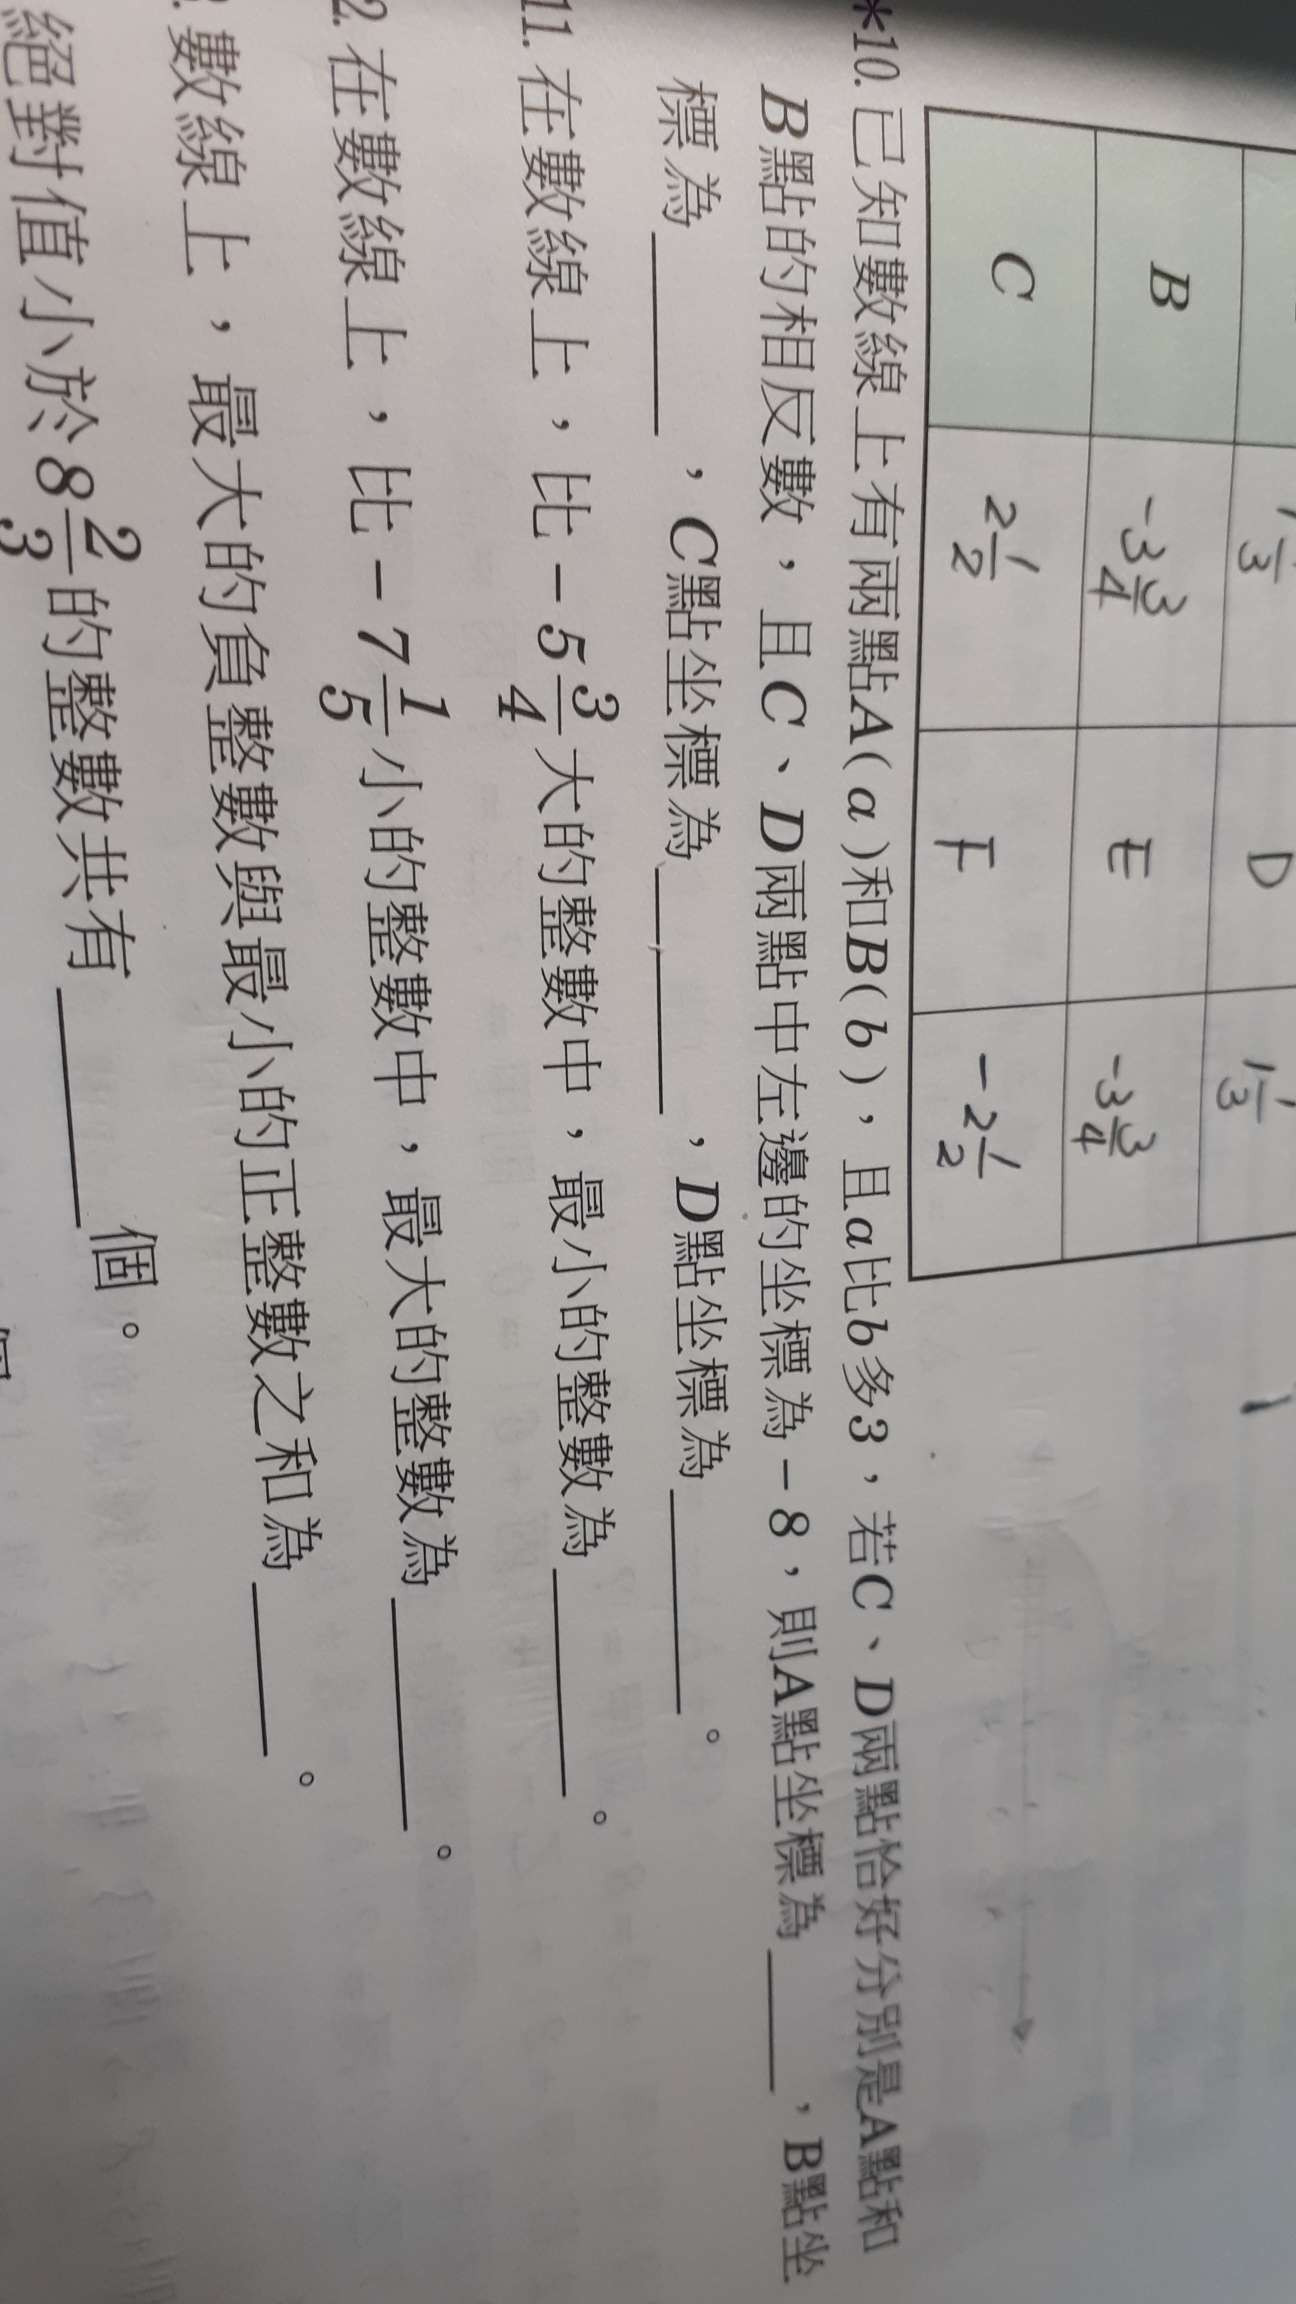 1/3 D 1 1/3
B -3 3/4 E -3 3/4
C 2 1/2 F -2 1/2
*10. 已知數線上有兩點A(a)和B(b),且a比b多3,若C、D兩點恰好分別是A點和
B點的相反數,且C、D兩點中左邊的坐標為-8,則A點坐標為____,B點坐
標為____,C點坐標為____,D點坐標為____。
11. 在數線上,比-5 3/4大的整數中,最小的整數為____。
2. 在數線上,比-7 1/5小的整數中,最大的整數為____。
數線上,最大的負整數與最小的正整數之和為____。
絕對值小於8 2/3的整數共有____個。